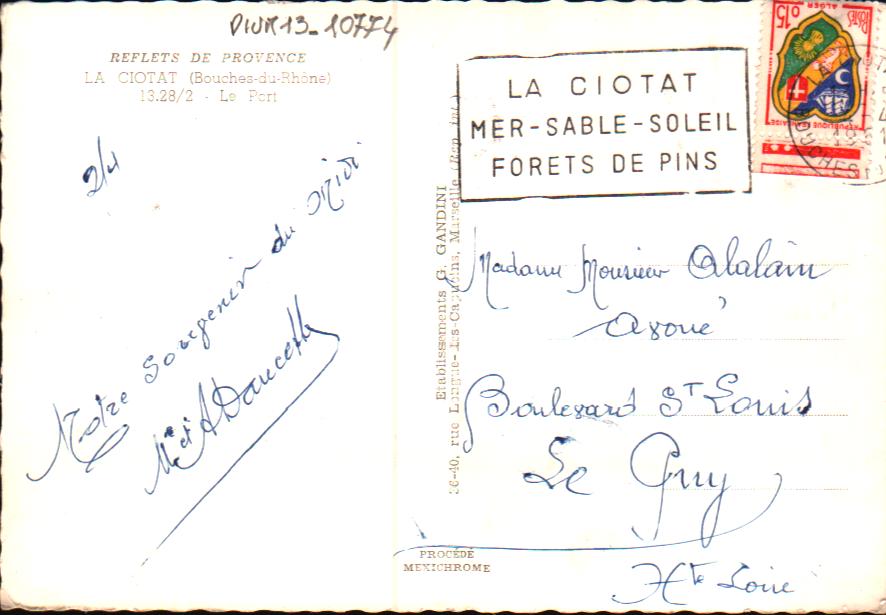 DIVR13_10774
REFLETS DE PROVENCE
LA CIOTAT (Bouches-du-Rhône)
13.28/2 - Le Port
2/4
Notre Souvenir du Midi
Mr et A Doucette
Etablissements G. GANDINI
36-40, rue Longue-des-Capucins, Marseille (Rep. int.)
PROCÉDÉ
MEXICHROME
LA CIOTAT
MER-SABLE-SOLEIL
FORETS DE PINS
POSTES
ALGER
0,15
REPUBLIQUE FRANÇAISE
Madame Monsieur Alalain
avoué
Boulevard St Louis
Le Puy
Hte Loire